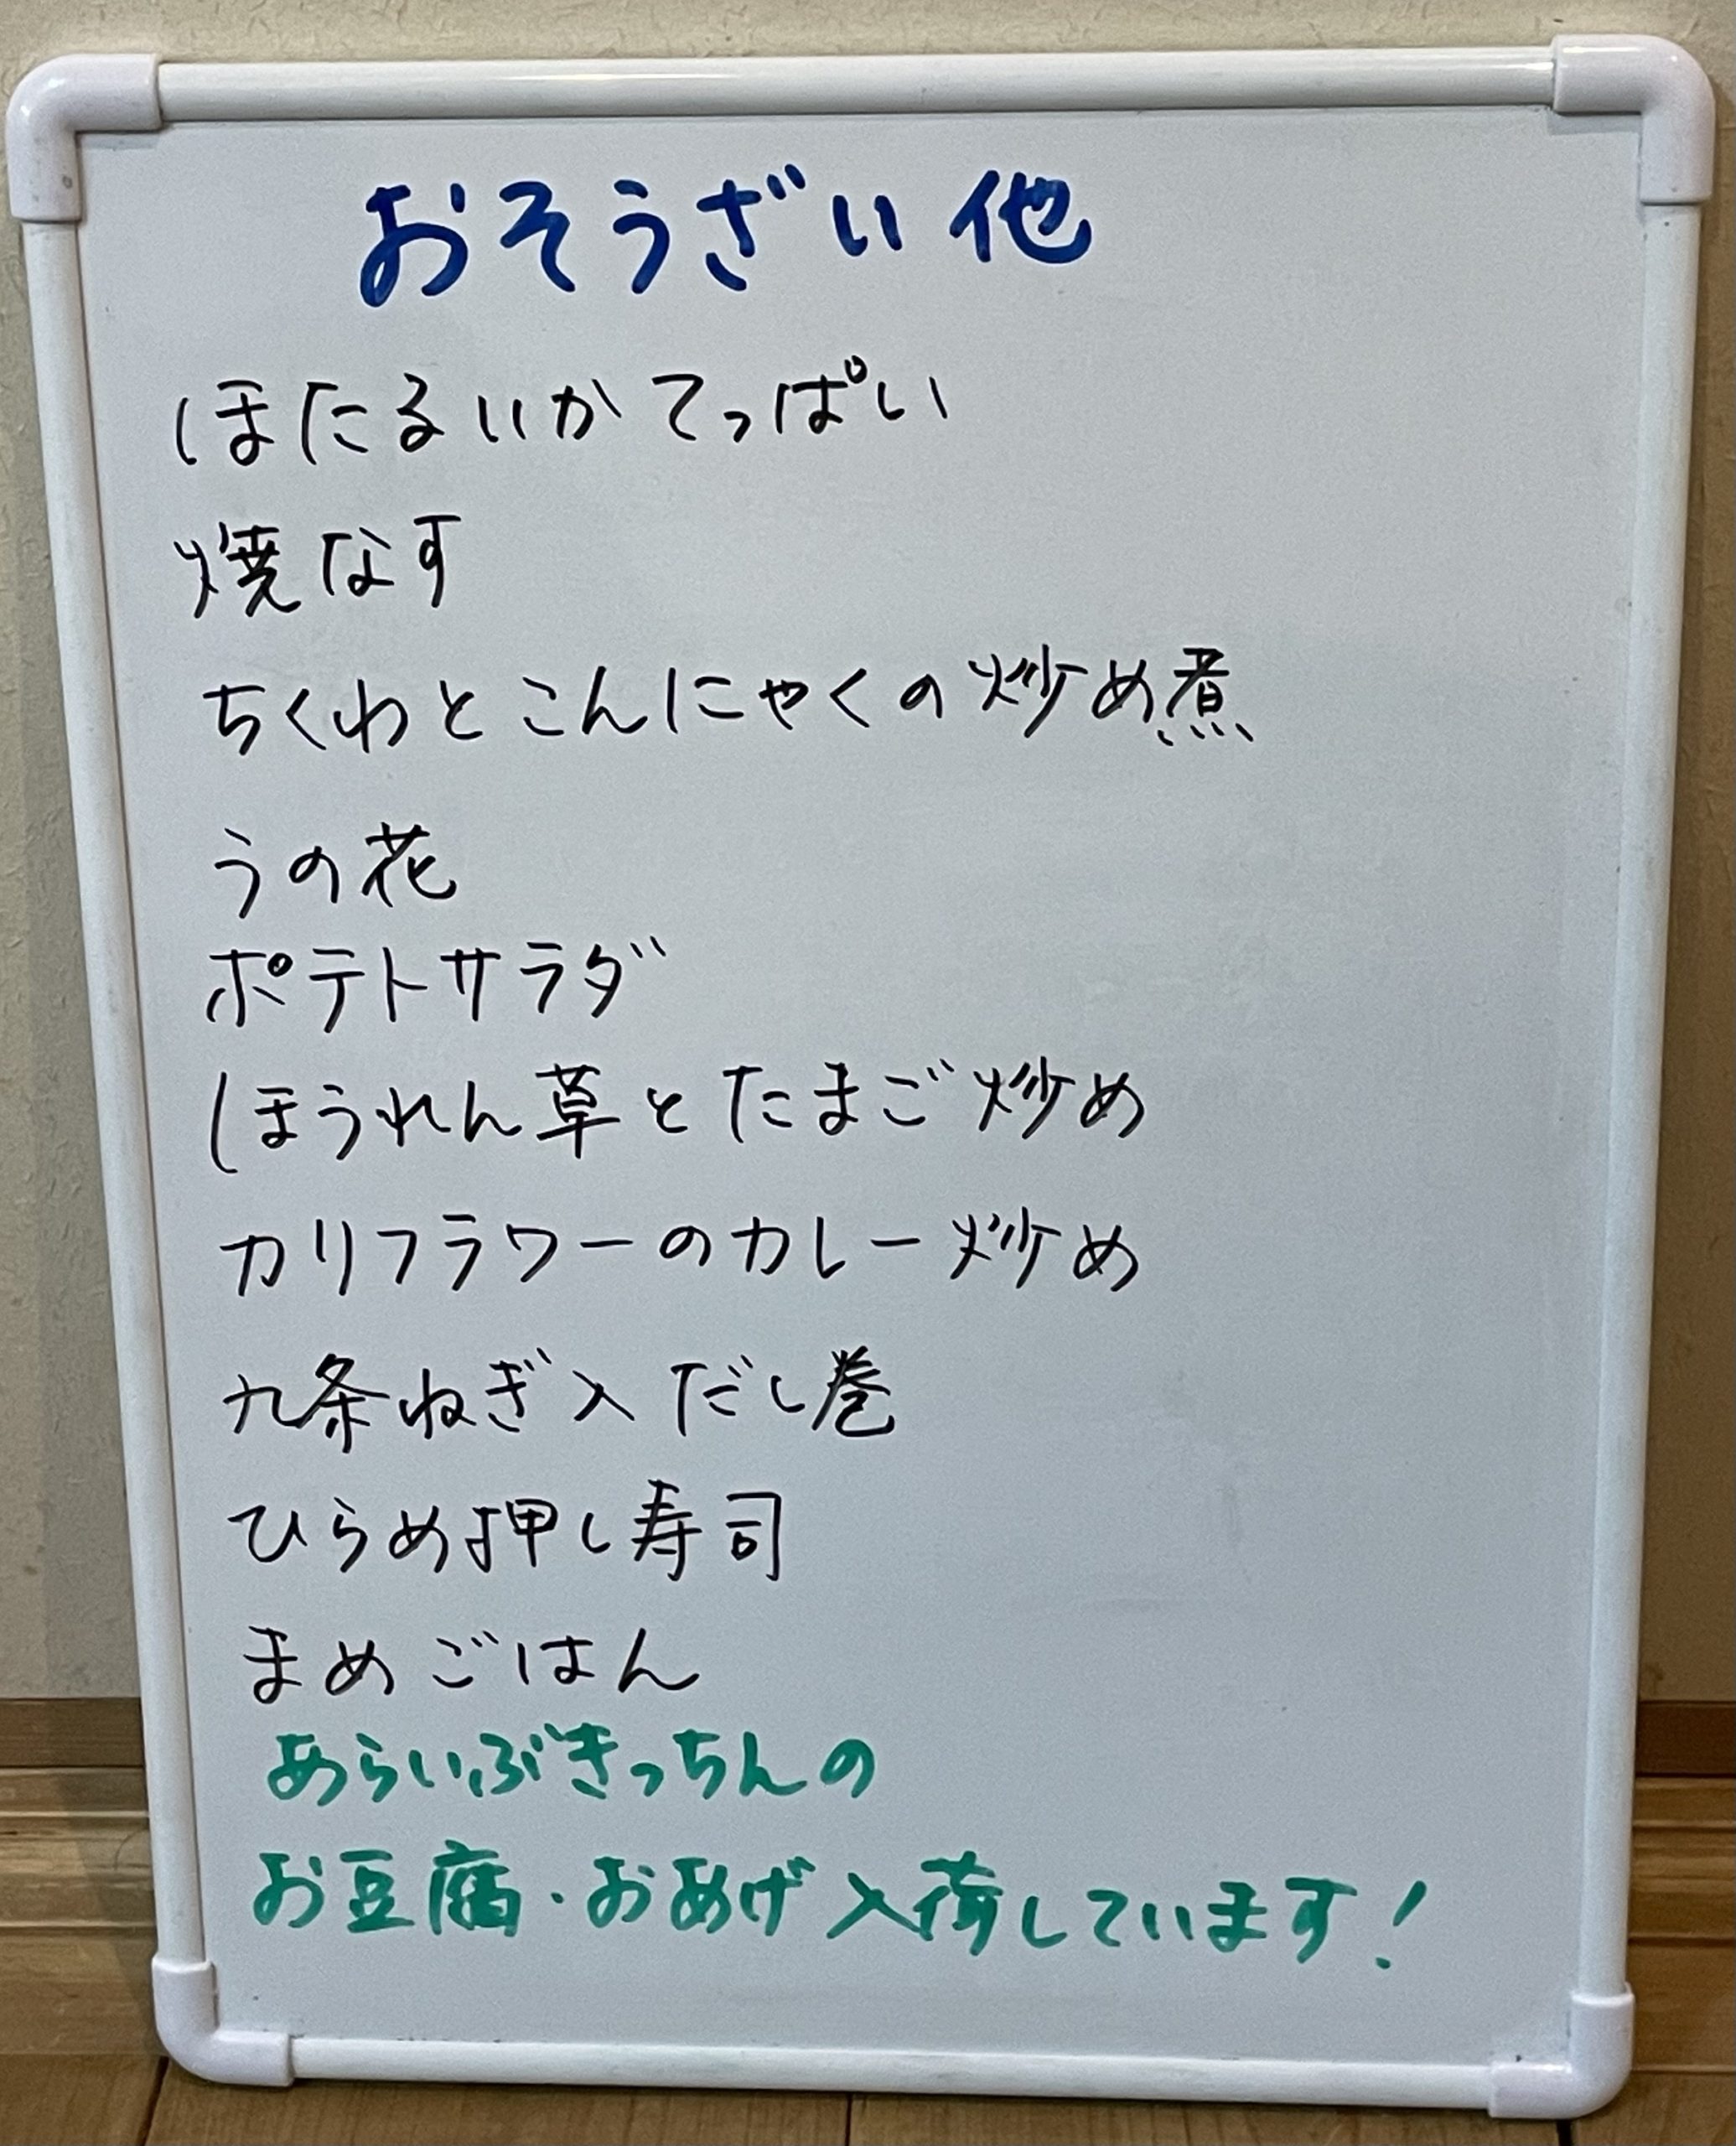 おそうざい 他
ほたるいか てっぱい
焼なす
ちくわと こんにゃくの 炒め煮
うの花
ポテトサラダ
ほうれん草と たまご 炒め
カリフラワーのカレー炒め
九条ねぎ入 だし巻
ひらめ押し寿司
まめごはん
あらいぶきっちんの
お豆腐・おあげ 入荷しています!